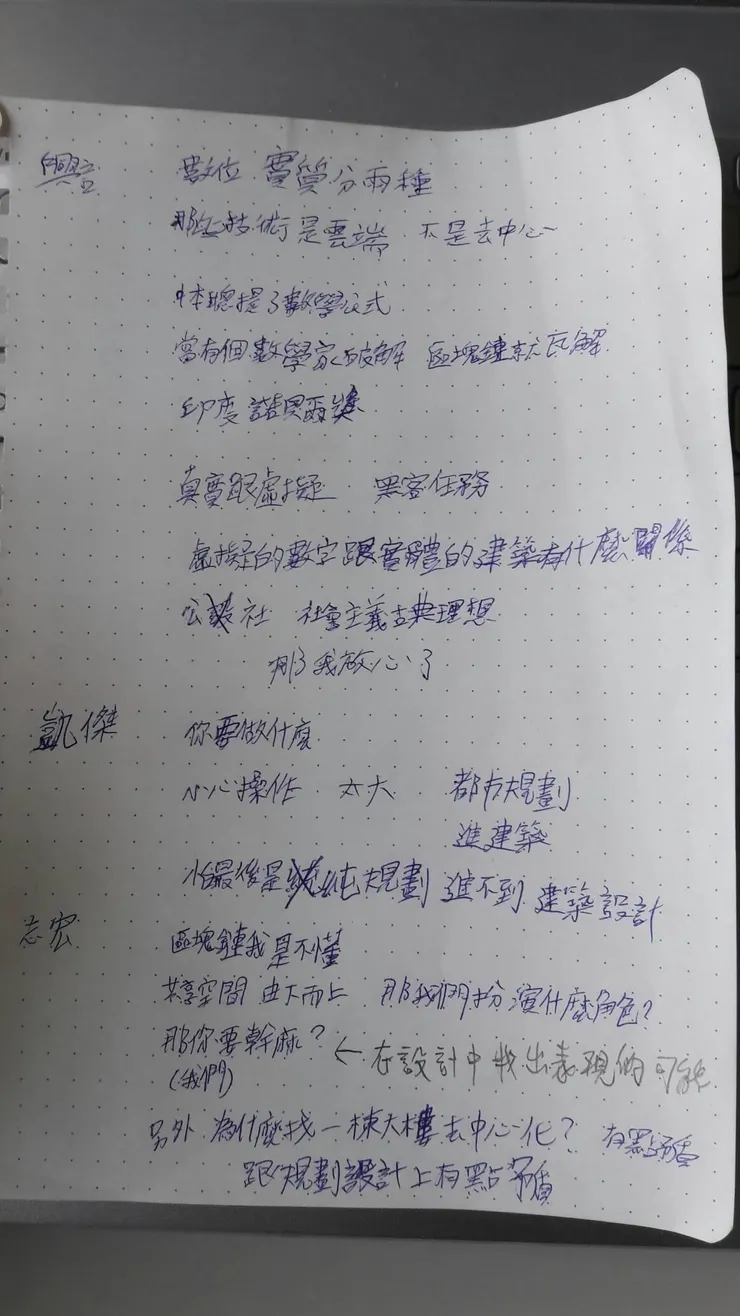 數位 實質分兩種
那些技術是雲端 不是去中心
中本聰提了數學公式
當有個數學家破解 區塊鏈就瓦解
印度 諾貝爾獎
真實跟虛擬 黑客任務
虛擬的數字跟實體的建築有什麼關係
公設 社 社會主義古典理想
那我放心了
凱傑 你要做什麼
小心操作 太大 都市規劃
進建築
怕最後是純規劃 進不到 建築設計
志宏 區塊鏈我是不懂
共享空間 由下而上 那我們扮演什麼角色?
那你要幹麻? ← 在設計中找出表現的可能
(我們)
另外 為什麼找一棟大樓去中心化? 有點矛盾
跟規劃設計上有點矛盾